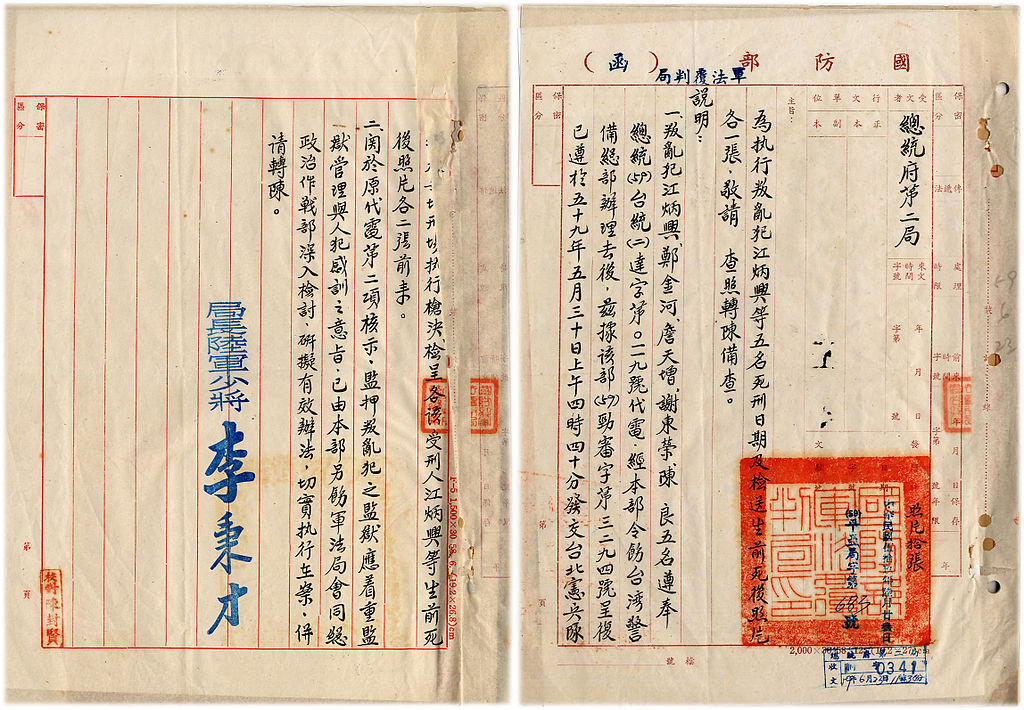 國防部（函）
軍法覆判局
保密區分
受文者
總統府第二局
行文單位
正本
副本
主旨：
為执行叛亂犯江炳興等五名死刑日期及檢送生前死後照片
各一張，敬請　查照轉陳備查。
說明：
一、叛亂犯江炳興、鄭金河、詹天增、謝東榮、陳　良五名遵奉
總統(59)台統(二)達字第○二一九號代電，經本部令飭台湾警
備總部辦理去後，茲據該部(59)勁審字第三二九四號呈復
已遵於五十九年五月三十日上午四時四十分發交台北憲兵隊
照片拾張
0341
執行槍決，檢呈各該受刑人江炳興等生前死
後照片各二張前来。
二、関於原代電第二項核示，監押叛亂犯之監獄應着重監
獄管理與人犯感訓之意旨，已由本部另飭軍法局會同總
政治作戰部深入檢討，研擬有效辦法，切實执行在案，併
請轉陳。
局長陸軍少將 李秉才
保密區分
第　頁
校對陳封賢